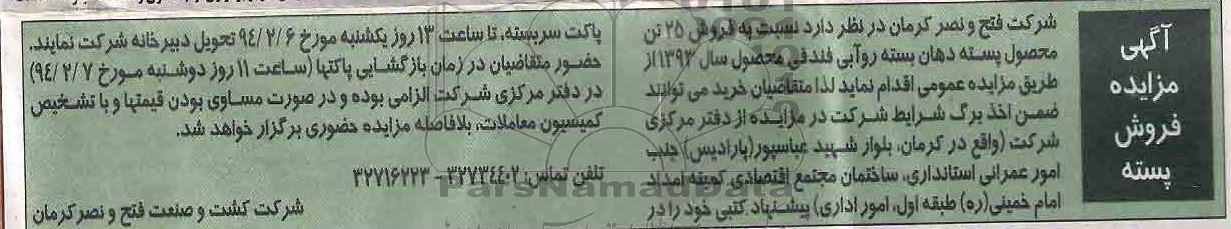 آگهی
مزایده
فروش
پسته
شرکت فتح و نصر کرمان در نظر دارد نسبت به فروش ۲۵ تن
محصول پسته دهان بسته روآبی فندقی محصول سال ۱۳۹۳ از
طریق مزایده عمومی اقدام نماید لذا متقاضیان خرید می توانند
ضمن اخذ برگ شرایط شرکت در مزایده از دفتر مرکزی
شرکت (واقع در کرمان، بلوار شهید عباسپور(پارادیس) جنب
امور عمرانی استانداری، ساختمان مجتمع اقتصادی کمیته امداد
امام خمینی(ره) طبقه اول، امور اداری) پیشنهاد کتبی خود را در
پاکت سربسته، تا ساعت ۱۳ روز یکشنبه مورخ ۹۴/۲/۶ تحویل دبیرخانه شرکت نمایند.
حضور متقاضیان در زمان بازگشایی پاکتها (ساعت ۱۱ روز دوشنبه مورخ ۹۴/۲/۷)
در دفتر مرکزی شرکت الزامی بوده و در صورت مساوی بودن قیمتها و با تشخیص
کمیسیون معاملات، بلافاصله مزایده حضوری برگزار خواهد شد.
تلفن تماس: ۳۲۷۳۴۴۰۲ - ۳۲۷۱۶۲۲۳
شرکت کشت و صنعت فتح و نصر کرمان
ParsNamadData